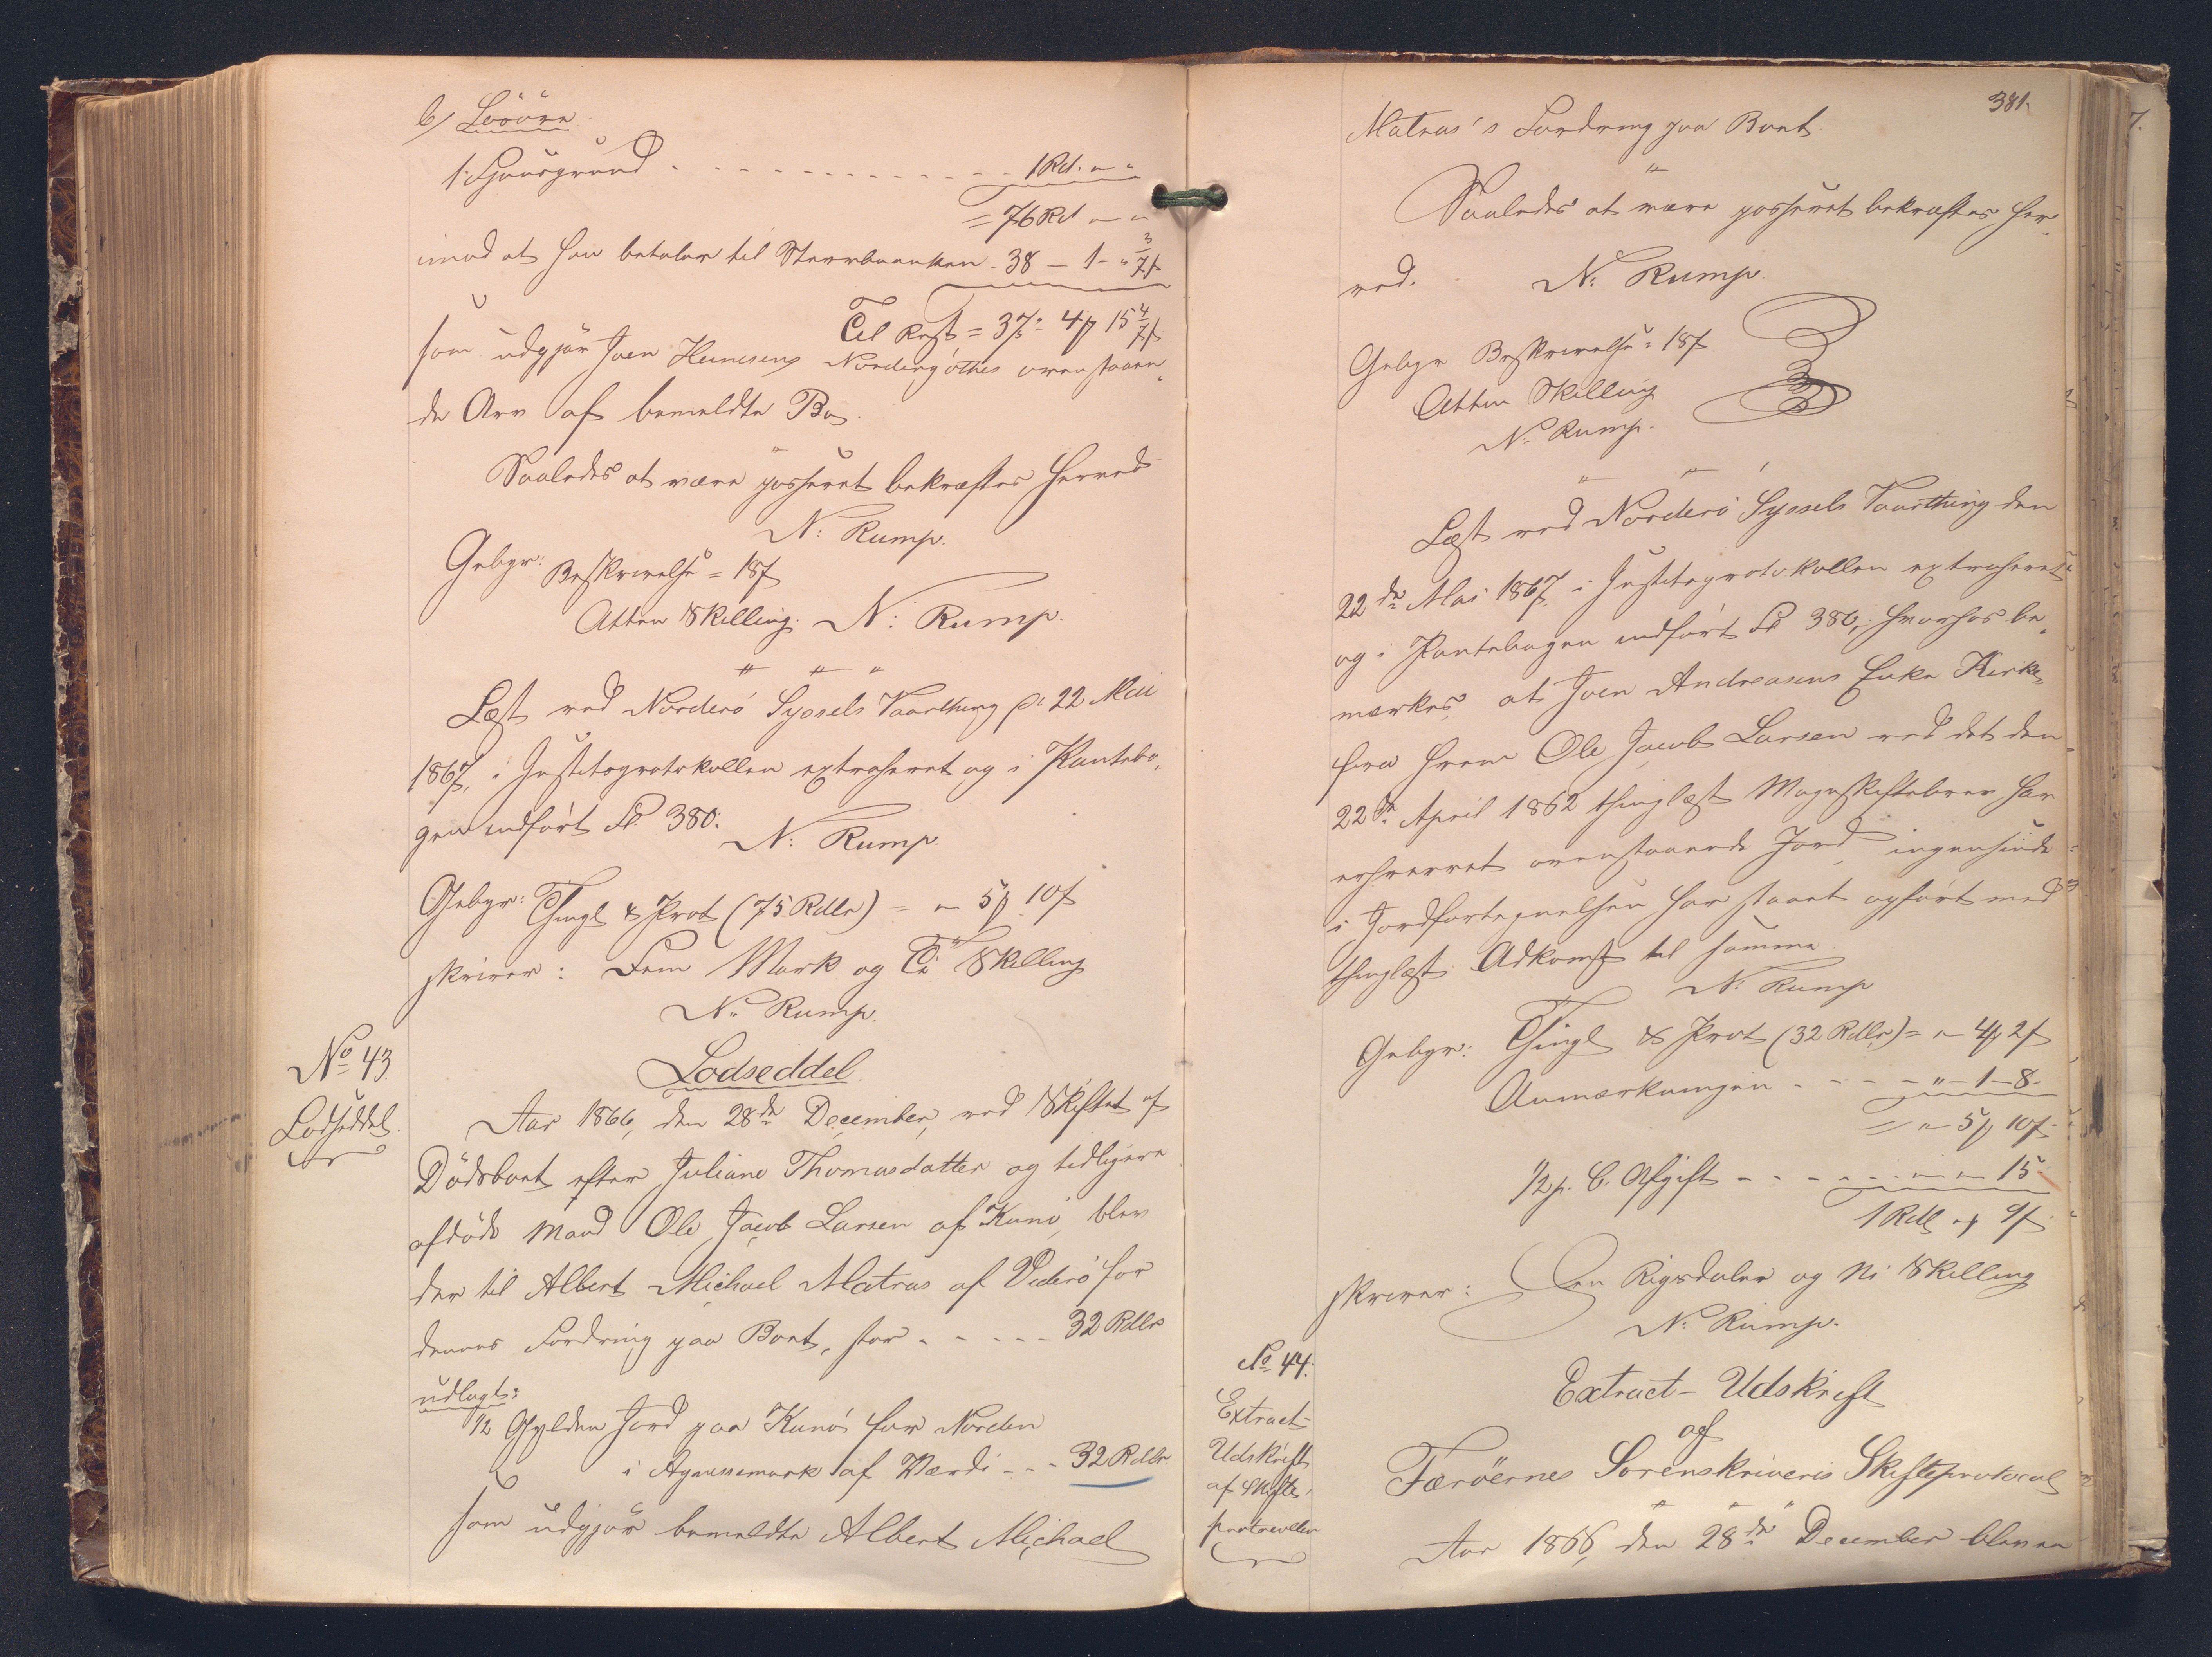 b/ Løsøre
1 Hjuusgrund - - - - - - - - - - - 1 Rd. " "
= 76 Rd " "
imod at han betaler til Stervboenken 38 - 1 - " 3/7 ß
Til Rest = 37 " 4 ß 15 4/7 ß
som udgjør Joen Heinesens Norderigöthes ovenstaaen-
de Arv af bemeldte Bo.
Saaledes at være passeret bekræftes herved
N. Rump.
Gebyr: Beskrivelse = 18 ß
Atten Skilling. N. Rump.
" " "
Læst ved Norderö Syssels Vaarthing d. 22 Mai
1867, i Justitsprotokollen extraheret og i Pantebo-
gen indført Fol. 380.
N. Rump.
Gebyr: Thingl. & Prot (75 Rdlr) = " 5 ß 10 ß
skriver: Fem Mark og Ti Skilling
N. Rump.
No 43.
Lodseddel.
Lodseddel.
Aar 1866, den 28de December, ved Skiftet af
Dödsboet efter Juliane Thomasdatter og tidligere
afdöde Mand Ole Jacob Larsen af Kunö, blev
der til Albert Michael Matras af Viderö for
dennes Fordring paa Boet, stor - - - - - 32 Rdlr
udlagt:
1/2 Gylden Jord paa Kunö for Norden
i Agnessemark af Værdi - - - 32 Rdlr.
som udgjör bemeldte Albert Michael
381.
Matras's Fordring paa Boet.
"
Saaledes at være passeret bekræftes her-
ved. N. Rump.
Gebyr Beskrivelse = 18 ß
Atten Skilling
N. Rump.
" " "
Læst ved Norderö Syssels Vaarthing den
22de Mai 1867, i Justitsprotokollen extraheret
og i Pantebogen indført Fol 380, hvorhos be-
mærkes, at Joen Andreasens Enke Kirke,
fra hvem Ole Jacob Larsen ved det den
22de April 1862 thinglæst Mageskiftebrev har
erhvervet ovenstaaende Jord, ingensinde
i Jordfortegnelsen har staaet opført med
thinglæst Adkomst til samme.
N. Rump
Gebyr: Thingl & Prot (32 Rdlr) = " 4 ß 2 ß
Anmærkningen - - - - " - 1 - 8 -
= " 5 ß 10 ß
1/2 p. C. Afgift - - - - - " " 15
1 Rdlr " ß 9 ß
skriver: Een Rigsdaler og Ni Skilling
N. Rump.
No 44.
Extract-
Udskrift
af Skifte-
protocollen
Extract-Udskrift
af
Færöernes Sorenskriveris Skifteprotocol
" " "
Aar 1866, den 28de December blev en